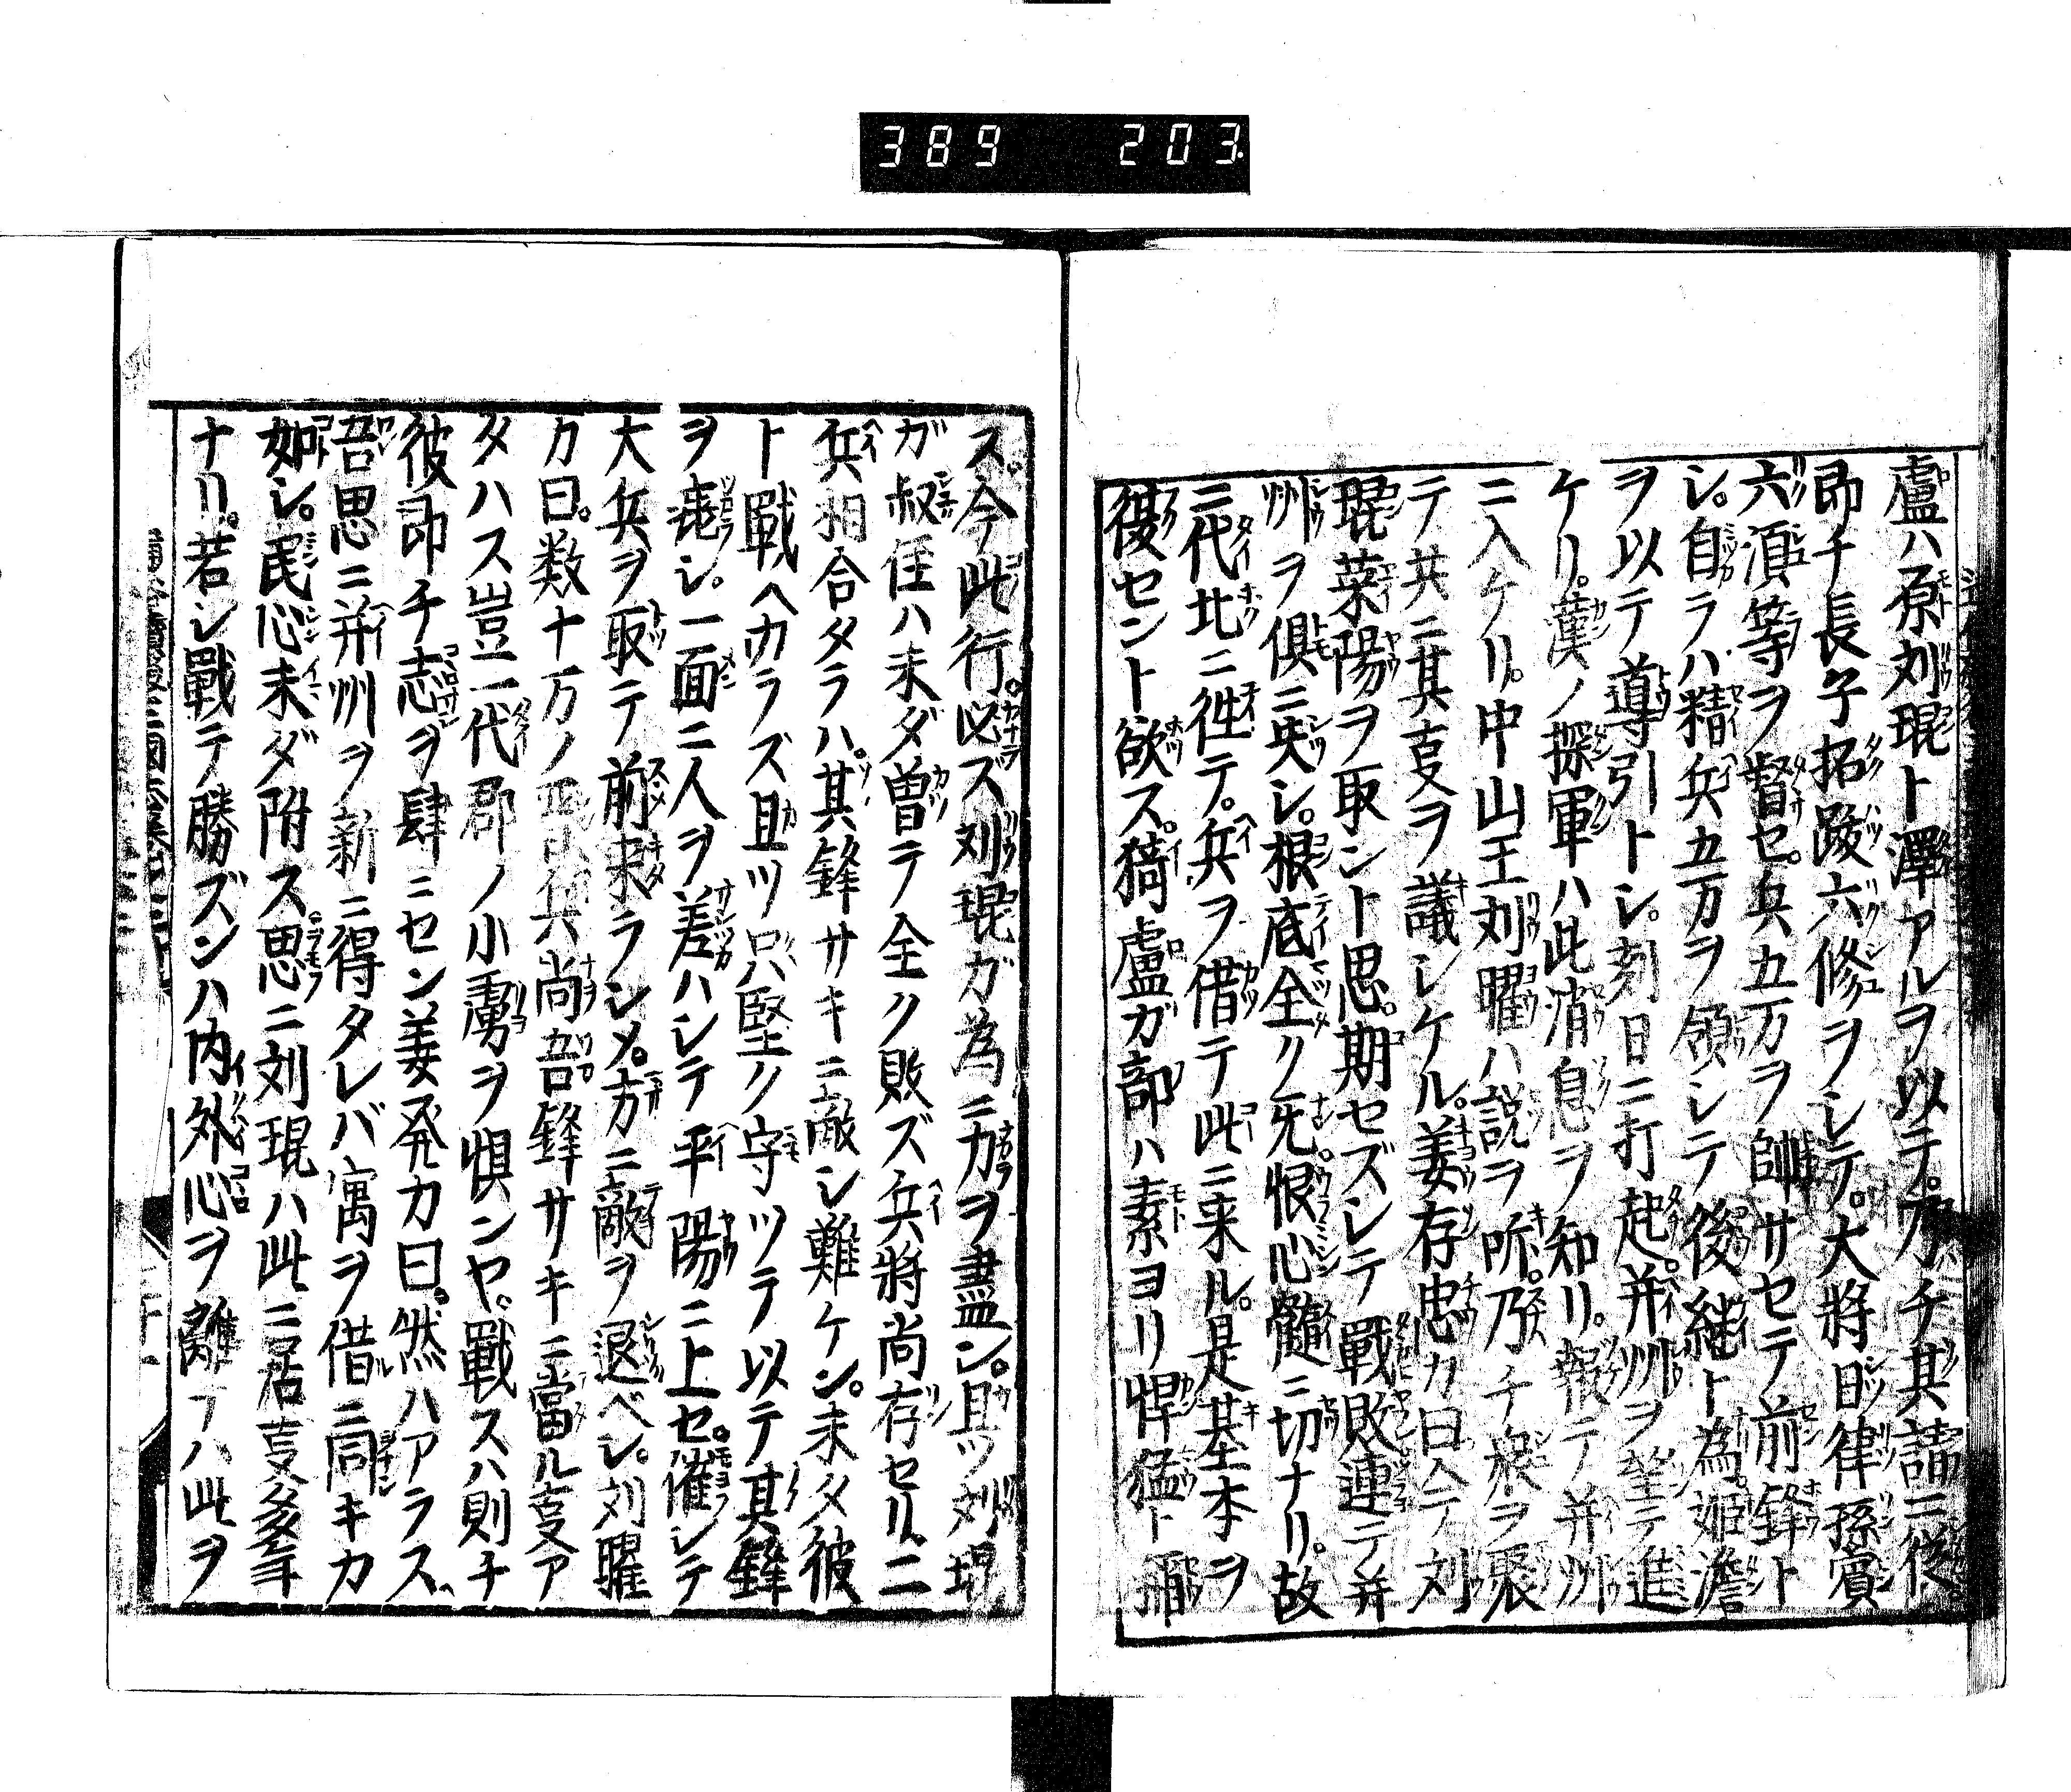 389 203
盧ハ原刘琨ト澤アルヲ以テ。乃チ其請ニ從
即チ長子拓跋六修ヲシテ。大將日律孫賓
六湏等ヲ督セ。兵五万ヲ帥サセテ前鋒ト
シ。自ラハ精兵五万ヲ領シテ後継ト為。姬澹
ヲ以テ導引トシ。刻日ニ打起。并州ヲ望テ進
ケリ。漢ノ探軍ハ此消息ヲ知リ。報テ并州
ニ入ケリ。中山王刘曜ハ説ヲ听。乃チ衆ヲ聚
テ共ニ其叓ヲ議シケル。姜存忠カ曰今刘
琨菜陽ヲ取ント思。期セズシテ戰敗連テ并
州ヲ倶ニ失シ。根底全ク旡。恨心髓ニ切ナリ。故
ニ代北ニ徃テ。兵ヲ借テ此ニ来ル。是基本ヲ
復セント欲ス。猗盧ガ部ハ素ヨリ悍猛ト称
ス。今此行。必ズ刘琨ガ為ニ力ヲ盡ン。且ツ刘琨
ガ叔侄ハ未ダ曽テ全ク敗ズ兵將尚存セリ。二
兵相合タラハ。其鋒サキニ敵シ難ケン。未タ彼
ト戰ヘカラズ且ツ只堅ク守ツテ以テ其鋒
ヲ喪シ。一面ニ人ヲ差ハシテ平陽ニ上セ。催シテ
大兵ヲ取テ前来ラシメ。方ニ敵ヲ退ベシ。刘曜
カ曰。数十万ノ兵尚吾鋒サキニ當ル叓ア
タハス豈一代郡ノ小虜ヲ惧ンヤ。戰スハ則チ
彼即チ志ヲ肆ニセン姜発カ曰。然ハアラス。
吾思ニ并州ヲ新ニ得タレバ寓ヲ借ニ同キカ
如シ。民心未ダ附ス思ニ刘琨ハ此ニ居叓多年
ナリ。若シ戰テ勝ズンハ内外心ヲ離ヿハ此ヲ